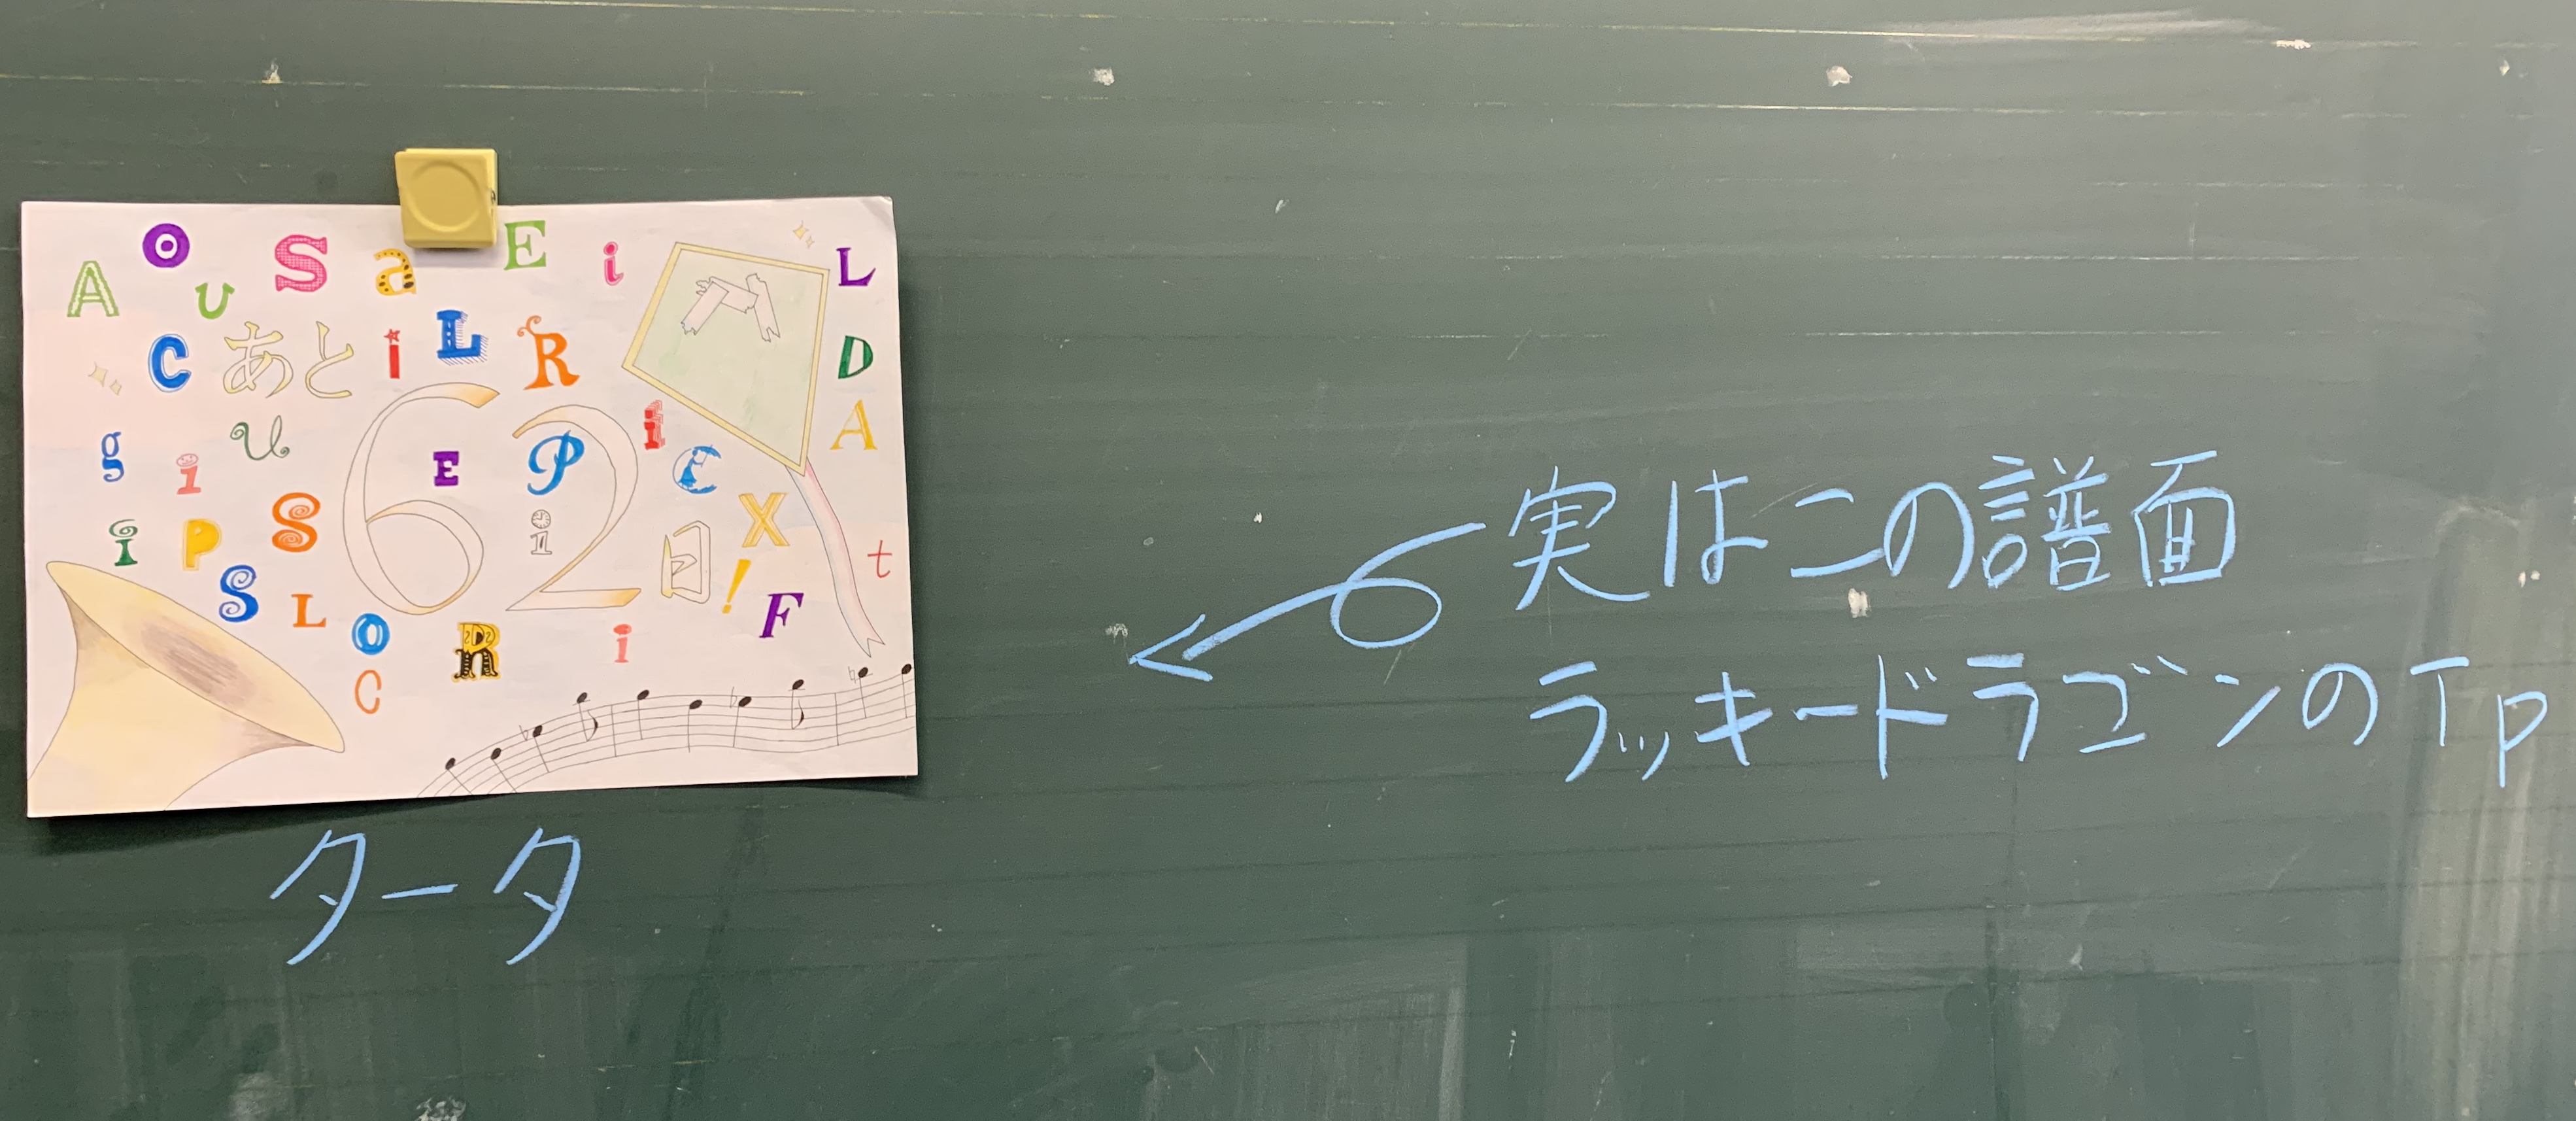 A O U S a E i L
C あと i L R D
g i U 62 E P i i C A
i P S 日! X t
S L O R i F
C
実はこの譜面
ラッキードラゴンのTp
タータ